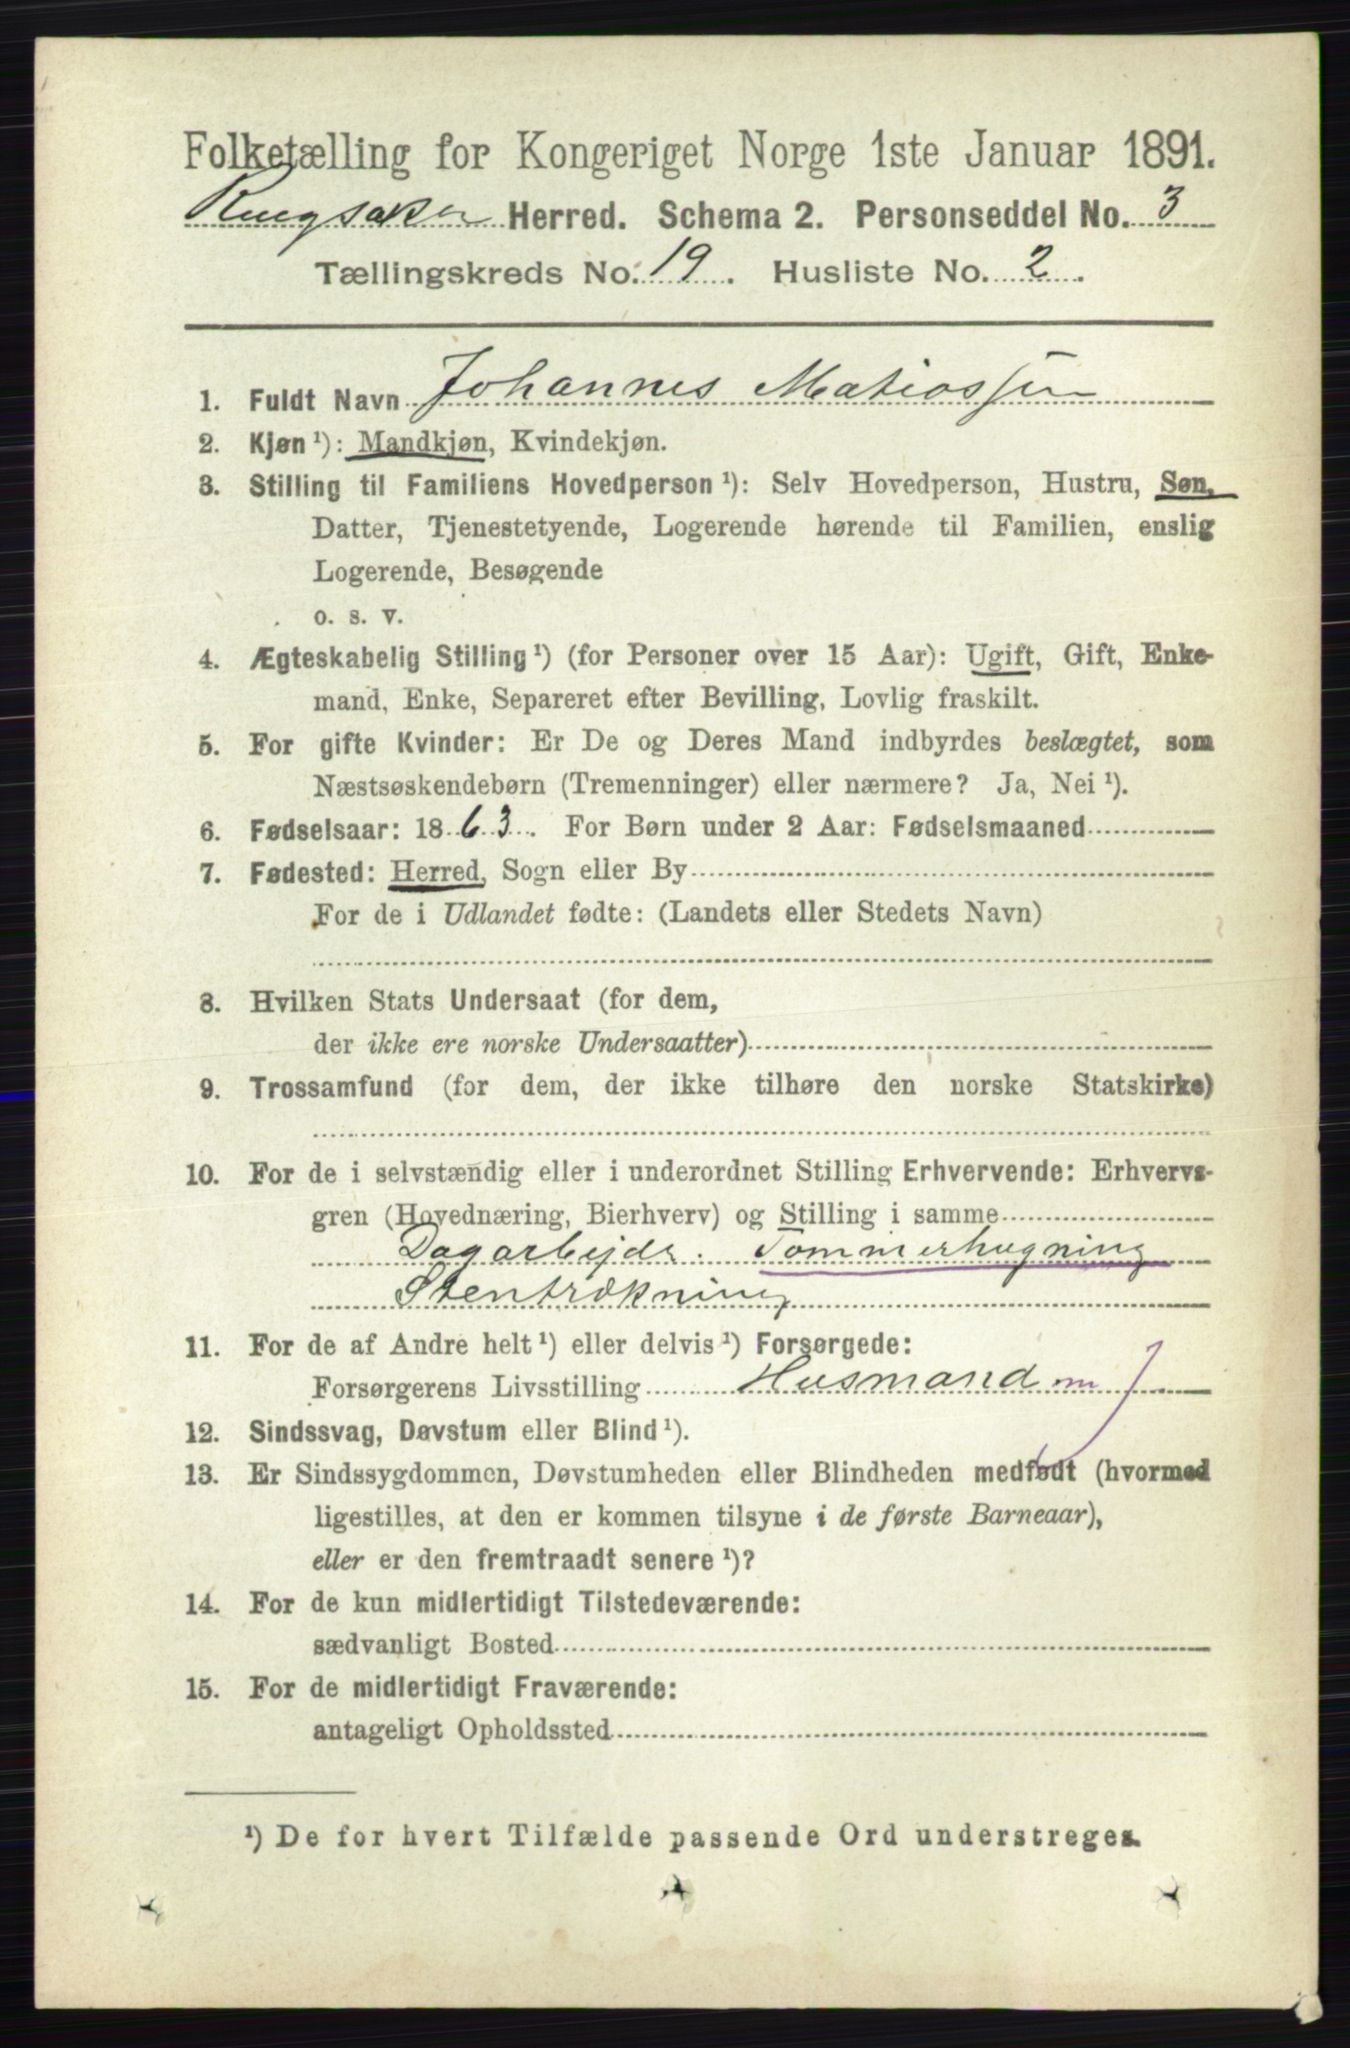 Folketælling for Kongeriget Norge 1ste Januar 1891.
Ringsaker Herred. Schema 2. Personseddel No. 3
Tællingskreds No. 19. Husliste No. 2.
1. Fuldt Navn Johannes Matiossen
2. Kjøn ¹): Mandkjøn, Kvindekjøn.
3. Stilling til Familiens Hovedperson ¹): Selv Hovedperson, Hustru, Søn,
Datter, Tjenestetyende, Logerende hørende til Familien, enslig
Logerende, Besøgende
o. s. v.
4. Ægteskabelig Stilling ¹) (for Personer over 15 Aar): Ugift, Gift, Enke-
mand, Enke, Separeret efter Bevilling, Lovlig fraskilt.
5. For gifte Kvinder: Er De og Deres Mand indbyrdes beslægtet, som
Næstsøskendebørn (Tremenninger) eller nærmere? Ja, Nei ¹).
6. Fødselsaar: 1863. For Børn under 2 Aar: Fødselsmaaned
7. Fødested: Herred, Sogn eller By
For de i Udlandet fødte: (Landets eller Stedets Navn)
8. Hvilken Stats Undersaat (for dem,
der ikke ere norske Undersaatter)
9. Trossamfund (for dem, der ikke tilhøre den norske Statskirke)
10. For de i selvstændig eller i underordnet Stilling Erhvervende: Erhvervs-
gren (Hovednæring, Bierhverv) og Stilling i samme
Dagarbejde. Tommerhugning
Stentrækning
11. For de af Andre helt ¹) eller delvis ¹) Forsørgede:
Forsørgerens Livsstilling Husmand m J
12. Sindssvag, Døvstum eller Blind ¹).
13. Er Sindssygdommen, Døvstumheden eller Blindheden medfødt (hvormed
ligestilles, at den er kommen tilsyne i de første Barneaar),
eller er den fremtraadt senere ¹)?
14. For de kun midlertidigt Tilstedeværende:
sædvanligt Bosted
15. For de midlertidigt Fraværende:
antageligt Opholdssted
¹) De for hvert Tilfælde passende Ord understreges.